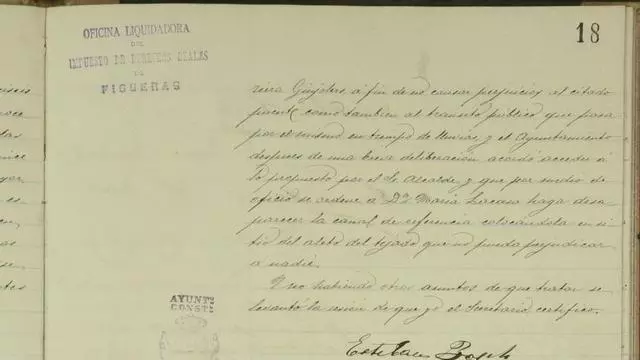 OFICINA LIQUIDADORA
DEL
IMPUESTO DE DERECHOS REALES
DE
FIGUERAS
18
á fin de no causar perjuicios al citado
puente como tambien al transito público que pasa
por el mismo en tiempo de lluvias, y el Ayuntamiento
despues de una breve deliberación acordó acceder á
lo propuesto por el Sr. Alcalde, y que por medio de
oficio se ordene a Dª Maria Lacasa haga desa
parecer la canal de referencia colocándola en si
tio del del tejado que no pueda perjudicar
a nadie.
Y no habiendo otros asuntos de que tratar se
levantó la sesion de que yo el Secretario certifico.
AYUNTº
CONSTˡ
Esteban Bosch